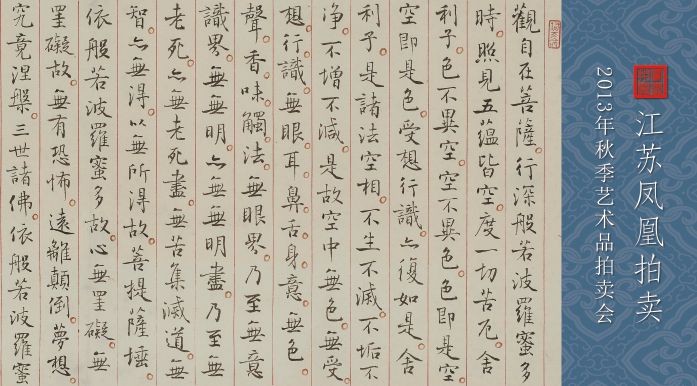 江苏凤凰拍卖
2013年秋季艺术品拍卖会
觀自在菩薩行深般若波羅蜜多
時照見五蘊皆空度一切苦厄舍
利子色不異空空不異色色即是空
空即是色受想行識亦復如是舍
利子是諸法空相不生不滅不垢不
淨不增不減是故空中無色無受
想行識無眼耳鼻舌身意無色
聲香味觸法無眼界乃至無意
識界無無明亦無無明盡乃至無
老死亦無老死盡無苦集滅道無
智亦無得以無所得故菩提薩埵
依般若波羅蜜多故心無罣礙無
罣礙故無有恐怖遠離顛倒夢想
究竟涅槃三世諸佛依般若波羅蜜